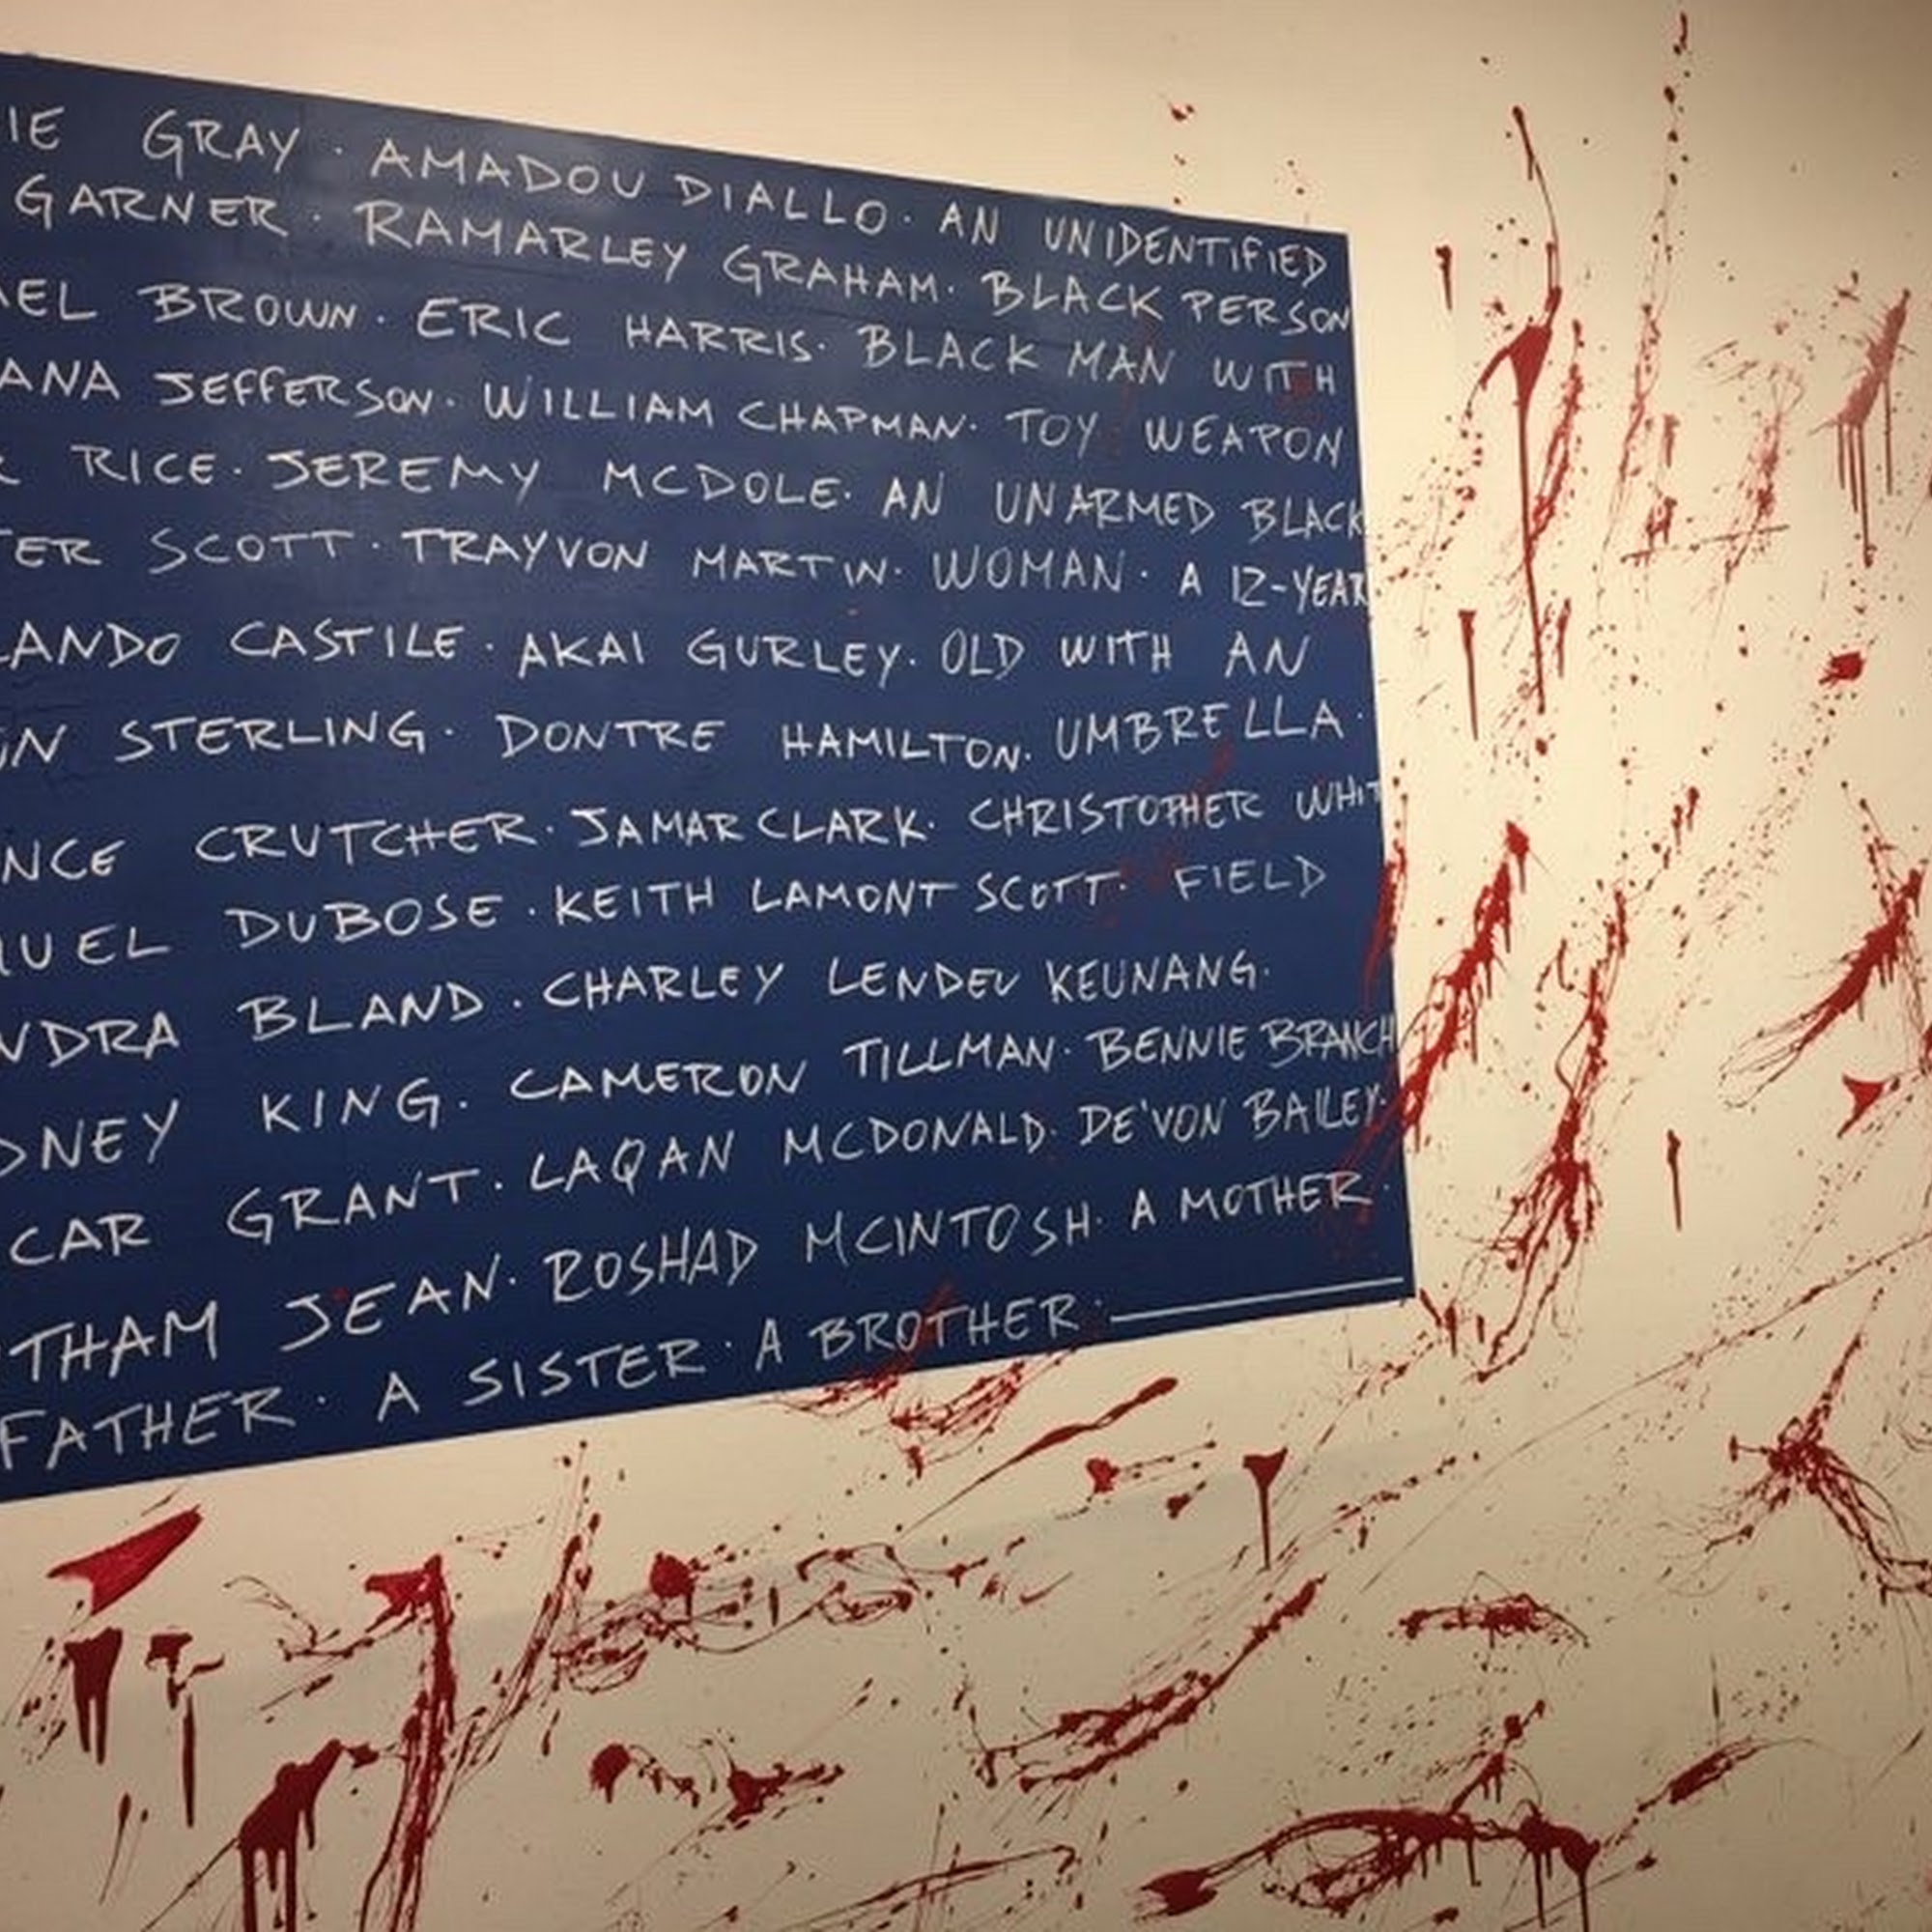 IE GRAY · AMADOU DIALLO · AN UNIDENTIFIED
GARNER · RAMARLEY GRAHAM · BLACK PERSON
EL BROWN · ERIC HARRIS · BLACK MAN WITH
ANA JEFFERSON · WILLIAM CHAPMAN · TOY WEAPON
RICE · JEREMY MCDOLE · AN UNARMED BLACK
TER SCOTT · TRAYVON MARTIN · WOMAN · A 12-YEAR
LANDO CASTILE · AKAI GURLEY · OLD WITH AN
N STERLING · DONTRE HAMILTON · UMBRELLA ·
NCE CRUTCHER · JAMAR CLARK · CHRISTOPHER WHIT
UEL DUBOSE · KEITH LAMONT SCOTT · FIELD
NDRA BLAND · CHARLEY LENDEU KEUNANG ·
DNEY KING · CAMERON TILLMAN · BENNIE BRANCH
CAR GRANT · LAQAN MCDONALD · DE'VON BAILEY ·
THAM JEAN · ROSHAD MCINTOSH · A MOTHER ·
FATHER · A SISTER · A BROTHER ·